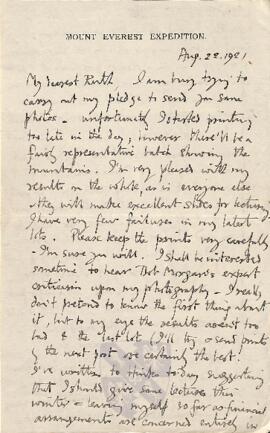 MOUNT EVEREST EXPEDITION.
Aug. 22. 1921.
My dearest Ruth. I am busy trying to
carry out my pledge to send you some
photos - unfortunately I started printing
too late in the day; however there'll be a
fairly representative batch showing the
mountains. I'm very pleased with my
results on the whole, as is everyone else
- they will make excellent slides for lecturing
I have very few failures in my latest
lots. Please keep the prints very carefully
- I'm sure you will. I shall be interested
sometime to hear Morgan's expert
criticism upon my photography - I really
don't pretend to know the first thing about
it, but to my eye the results aren't too
bad & the last lot, I'll try & send prints
by the next post are certainly the best.
I've written to Hinks to-day suggesting
that I should give some lectures this
winter - leaving myself so far as financial
arrangements are concerned entirely in